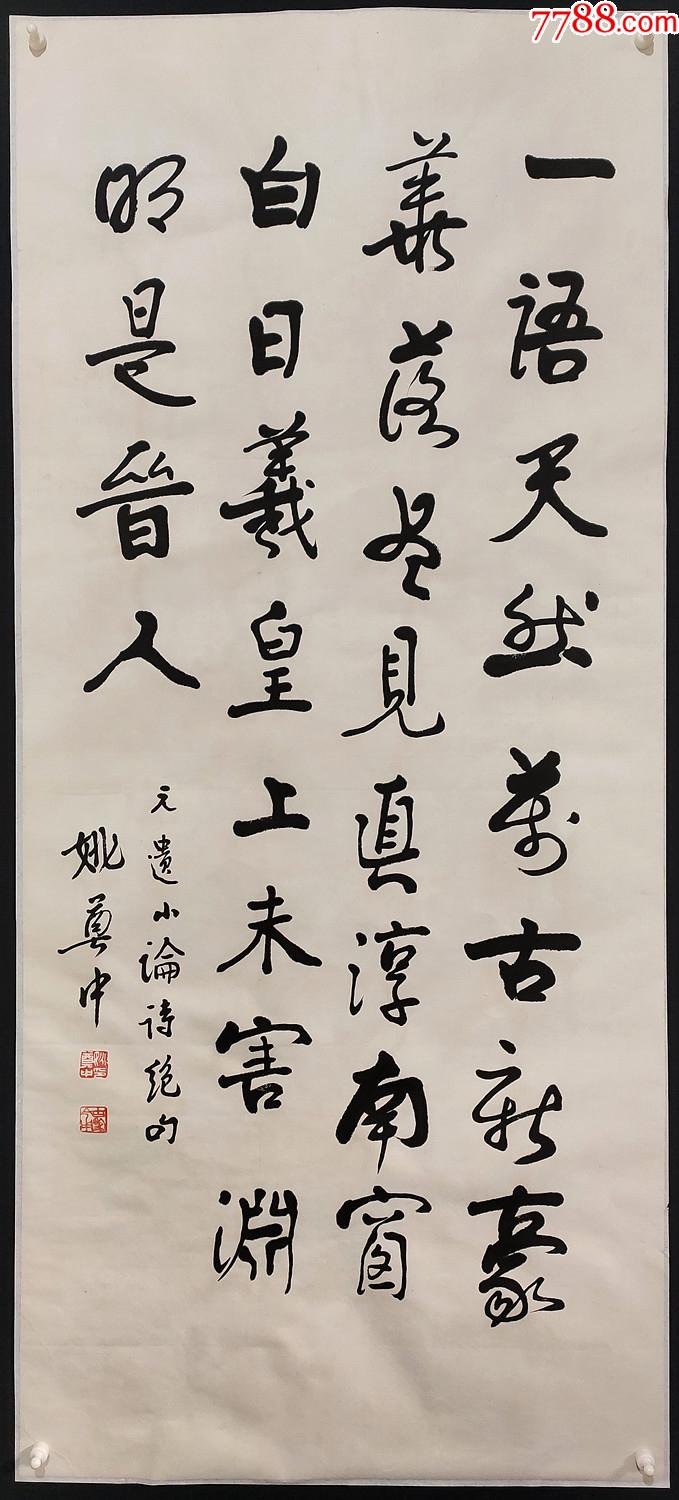 7788.com
一語天然萬古新豪
華落盡見真淳南窗
白日羲皇上未害淵
明是晉人
元遺山論詩絕句
姚奠中